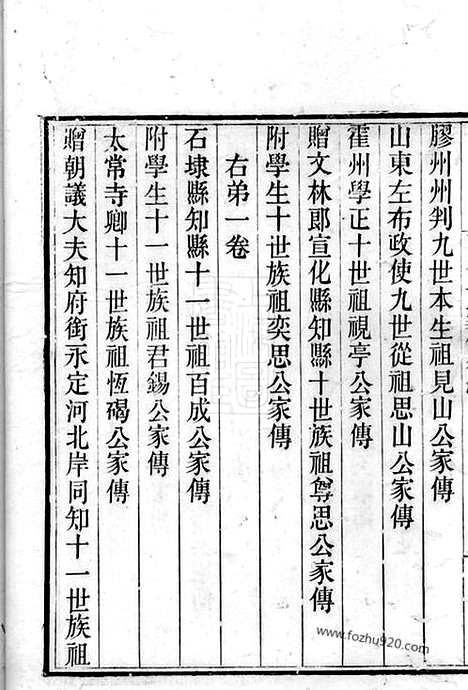 膠州州判九世本生祖見山公家傳
山東左布政使九世從祖思山公家傳
霍州學正十世祖視亭公家傳
贈文林郎宣化縣知縣十世族祖尊思公家傳
附學生十世族祖奕思公家傳
右弟一卷
石埭縣知縣十一世祖百成公家傳
附學生十一世族祖君錫公家傳
太常寺卿十一世族祖恆碣公家傳
贈朝議大夫知府銜永定河北岸同知十一世族祖
www.fozhu920.com